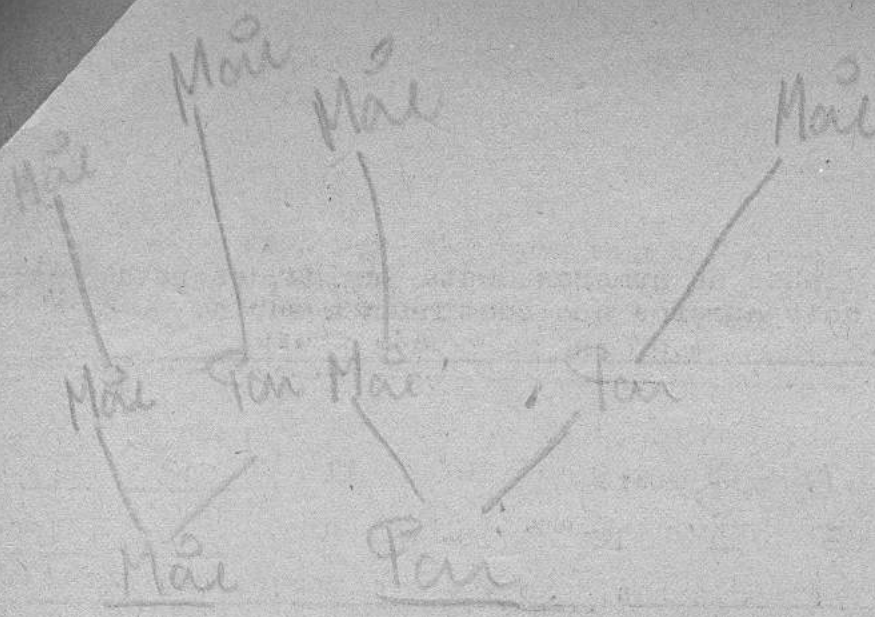 Mãe
Mãe
Mãe
Mãe
Mãe Pai Mãe Pai
Mãe Pai